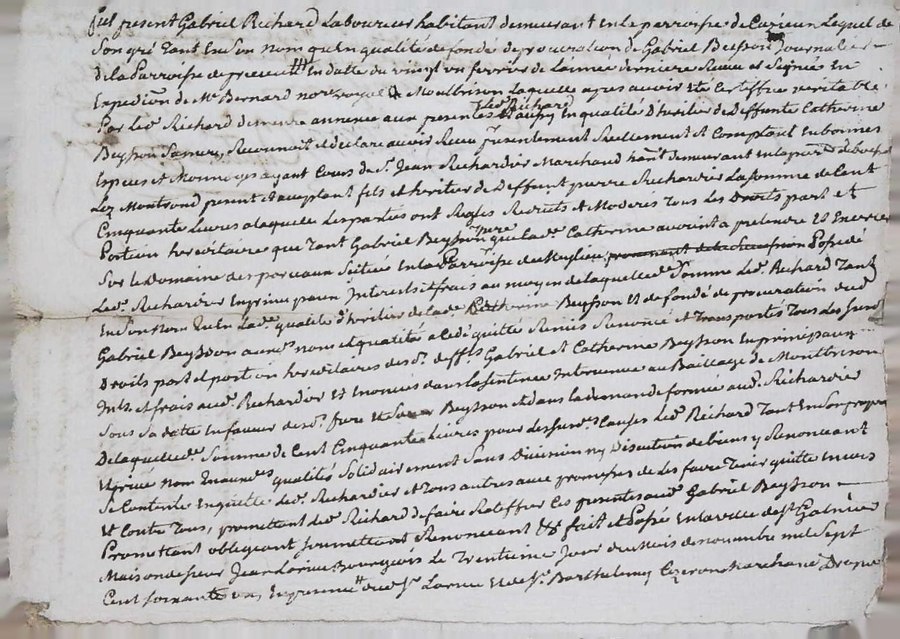 fut present Gabriel Richard Laboureur habitant demeurant en le parroisse de Cuzieu Lequel de
Son gré Tant En Son nom qu'En qualité de fondé de procuration de Gabriel Beysson Journalier
De la Parroisse de En datte du vingt un fevrier de Lannée derniere Receu et Signée En
Expedition de Me Bernard nore royal a Montbrison Laquelle apres avoir Eté Certiffiée veritable
Par Led. Richard demeure annexée aux presentes Led. Richard En qualité d'hritier de deffunte Catherine
Beysson Sa mere, Reconnoit et declare avoir Receu presentement Reellement et Comptant En bonnes
Especes et Monnoyes ayant Cours de Sr. Jean Richardier Marchand hant demeurant En la parr. de
Lez Montrond present et acceptant fils et heritier de deffunt pierre Richardier La Somme de Cent
Cinquante Livres a laquelle Les parties ont Reglés Reduits et Moderés Tous Les Droits part et
Portion hereditaire que Tant Gabriel Beysson que lade. Catherine avoient a pretendre Et Exercer
Sur le Domaine des porcaux Scitué En la Parroisse de provenant de la Succession Possedé
Led. Richardier En principaux Interests et frais au moyen de laquelle de. Somme Led. Richard Tant
En Son Nom qu'En Lade. qualité d'hritier de lade. Catherine Beysson Et de fondé de procuration dud.
Gabriel Beysson auxds. noms et qualités a Cedé quitté Remis Renoncé et Transportés Tous Les Susds.
Droits part et portion hereditaires desds. deffts Gabriel et Catherine Beysson En principaux
Ints. et frais aud. Richardier Et Enoncés dans la Sentence Intervenue au Bailliage de Montbrison
Sous Sa datte En faveur desds. frere et Soeur Beysson et dans la demande formée aud. Richardier
De laquelle de. Somme de Cent Cinquante Livres pour Les Susds. Causes Led. Richard Tant En Son propre
Et privé nom En auxds. qualités Solidairement Sans Division ny Discution de biens y Renonceant
Se Contente En quitte Led. Richardier et Tous autres avec promesses de Les faire Tenir quitte Envers
Et Contre Tous, promettant Led. Richard de faire Ratiffier Ces presentes aud. Gabriel Beysson
Promettant obligeant Soumettant Renonceant &a fait et Passé En la ville de St Galmier
Maison de Sieur Jean Larue Bourgeois Le Trentieme Jour du Mois de novembre mil Sept
Cent Soixante En presence dud. Sr. Larue Et de Sr. Barthelemy Marchand Drapier